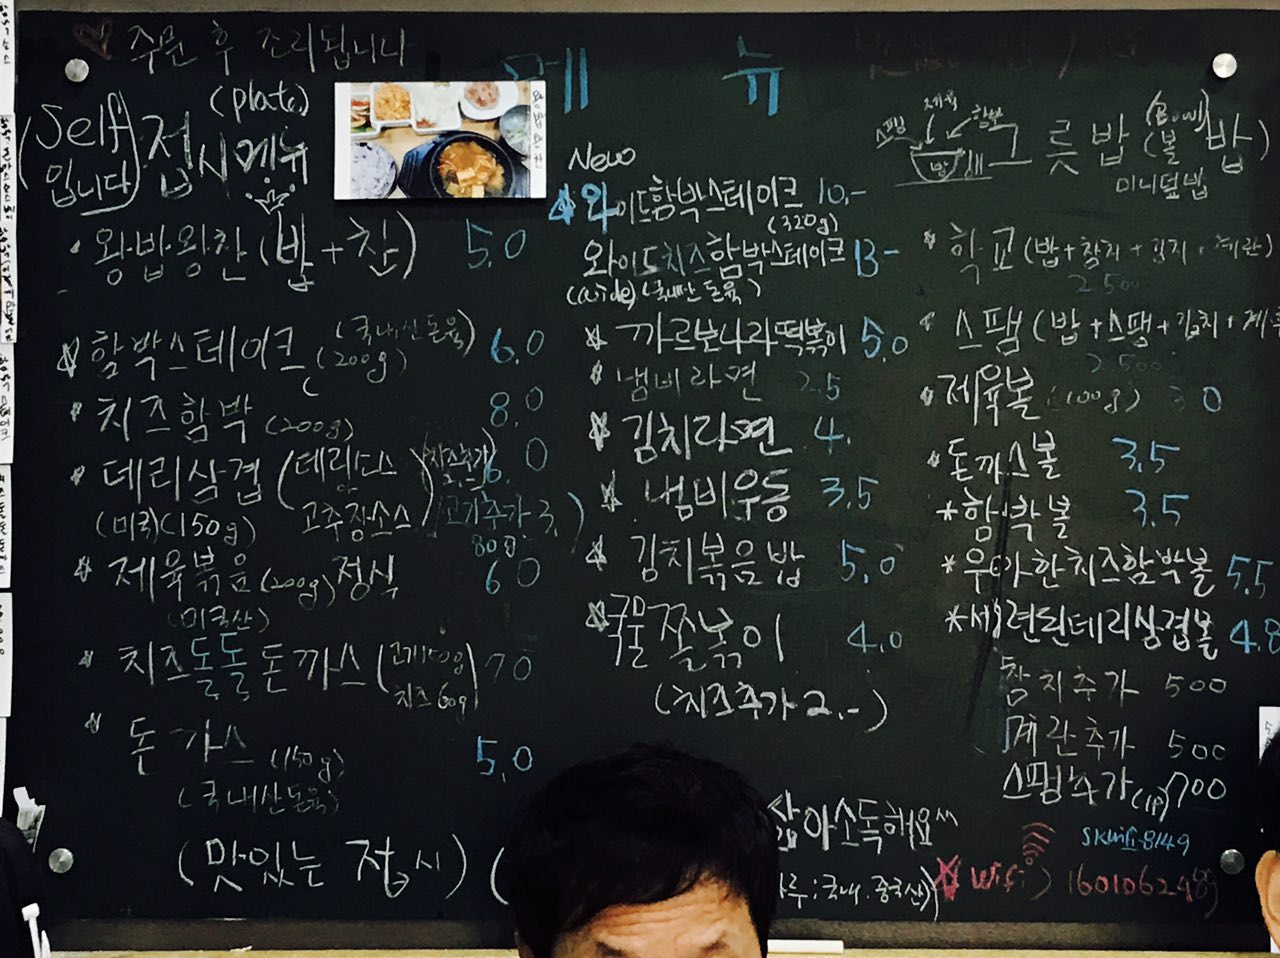 주문 후 조리됩니다
메 뉴
(Self 입니다)
접시메뉴 (plate)
왕밥왕찬(밥+찬) 5.0
함박스테이크 (국내산돈육) (200g) 6.0
치즈함박 (200g) 8.0
데리삼겹 (데리소스 고추장소스) (치즈추가) 6.0
(미국)(150g) 고기추가 3.
80g
제육볶음(200g)정식 6.0
(미국산)
치즈돌돌돈까스 (고기150g 치즈60g) 7.0
돈가스 (150g) 5.0
(국내산돈육)
(맛있는 접시)
New
와이드함박스테이크 10,-
(320g)
와이드치즈함박스테이크 13-
(wide)(국내산돈육)
까르보나라떡볶이 5.0
냄비라면 2.5
김치라면 4.
냄비우동 3.5
김치볶음밥 5.0
국물쫄볶이 4.0
(치즈추가 2.-)
스팸 제육 함박
밥
그릇밥 (Bowl) (볼밥)
미니덮밥
학교(밥+참치+김치+계란)
2500
스팸(밥+스팸+김치+계
2500
제육볼 (100g) 3.0
돈까스볼 3.5
*함박볼 3.5
*우아한치즈함박볼 5.5
*세련된데리삼겹볼 4.8
참치추가 500
계란추가 500
스팸추가(1P) 700
아소독해요^^
루:국내.중국산)
skwifi-8149
Wifi) 1601062489